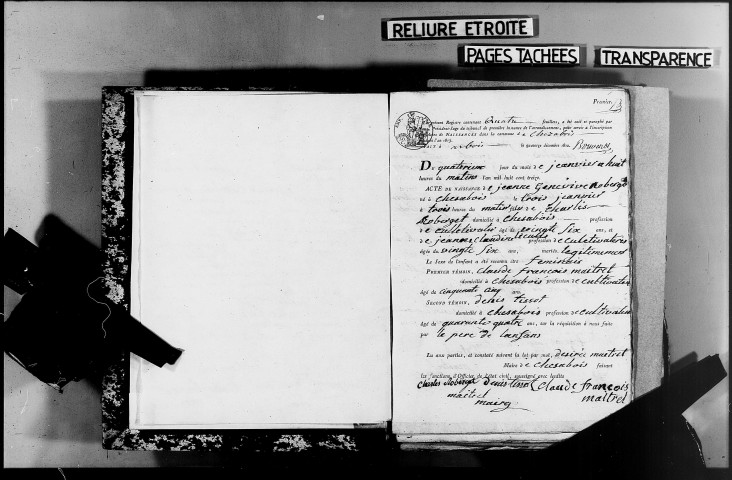 RELIURE ETROITE
PAGES TACHEES
TRANSPARENCE
Premier
présent Registre contenant Quatre feuillets, a été coté et paraphé par
Président-Juge du tribunal de première instance de l'arrondissement, pour servir à l'inscription
de NAISSANCES dans la commune de Chezabois
le quatorze décembre 1812.
Du quatorzieme jour du mois de jeanvier a huit
heures du matins l'an mil huit cent treize.
ACTE DE NAISSANCE de jeanne Genevieve Roberget
né à chesabois le trois jeanvier
à trois heures du matin fille de Charlis
Roberget domicilié à chesabois profession
de culletivater âgé de vingte six ans, et
de jeanne claudine profession de culetivatores
âgée de vingte six ans, mariés legitimement
Le Sexe de l'enfant a été reconnu être feminins
PREMIER TÉMOIN, claude francois maitret
domicilié à chesabois profession de cultivater
âgé de cinquante ans
SECOND TÉMOIN, denis tissot
domicilié à chesabois profession de cultivater
âgé de quarante quatre ans, sur la réquisition à nous faite
par le pere de lanfans
Lu aux parties, et constaté suivant la loi par moi, desirée maitret
Maire de chesabois faisant
les fonctions d'Officier de l'état civil, soussigné avec lesdits
Charles Roberget denis tissot Claude francois
maitret maitret
maire